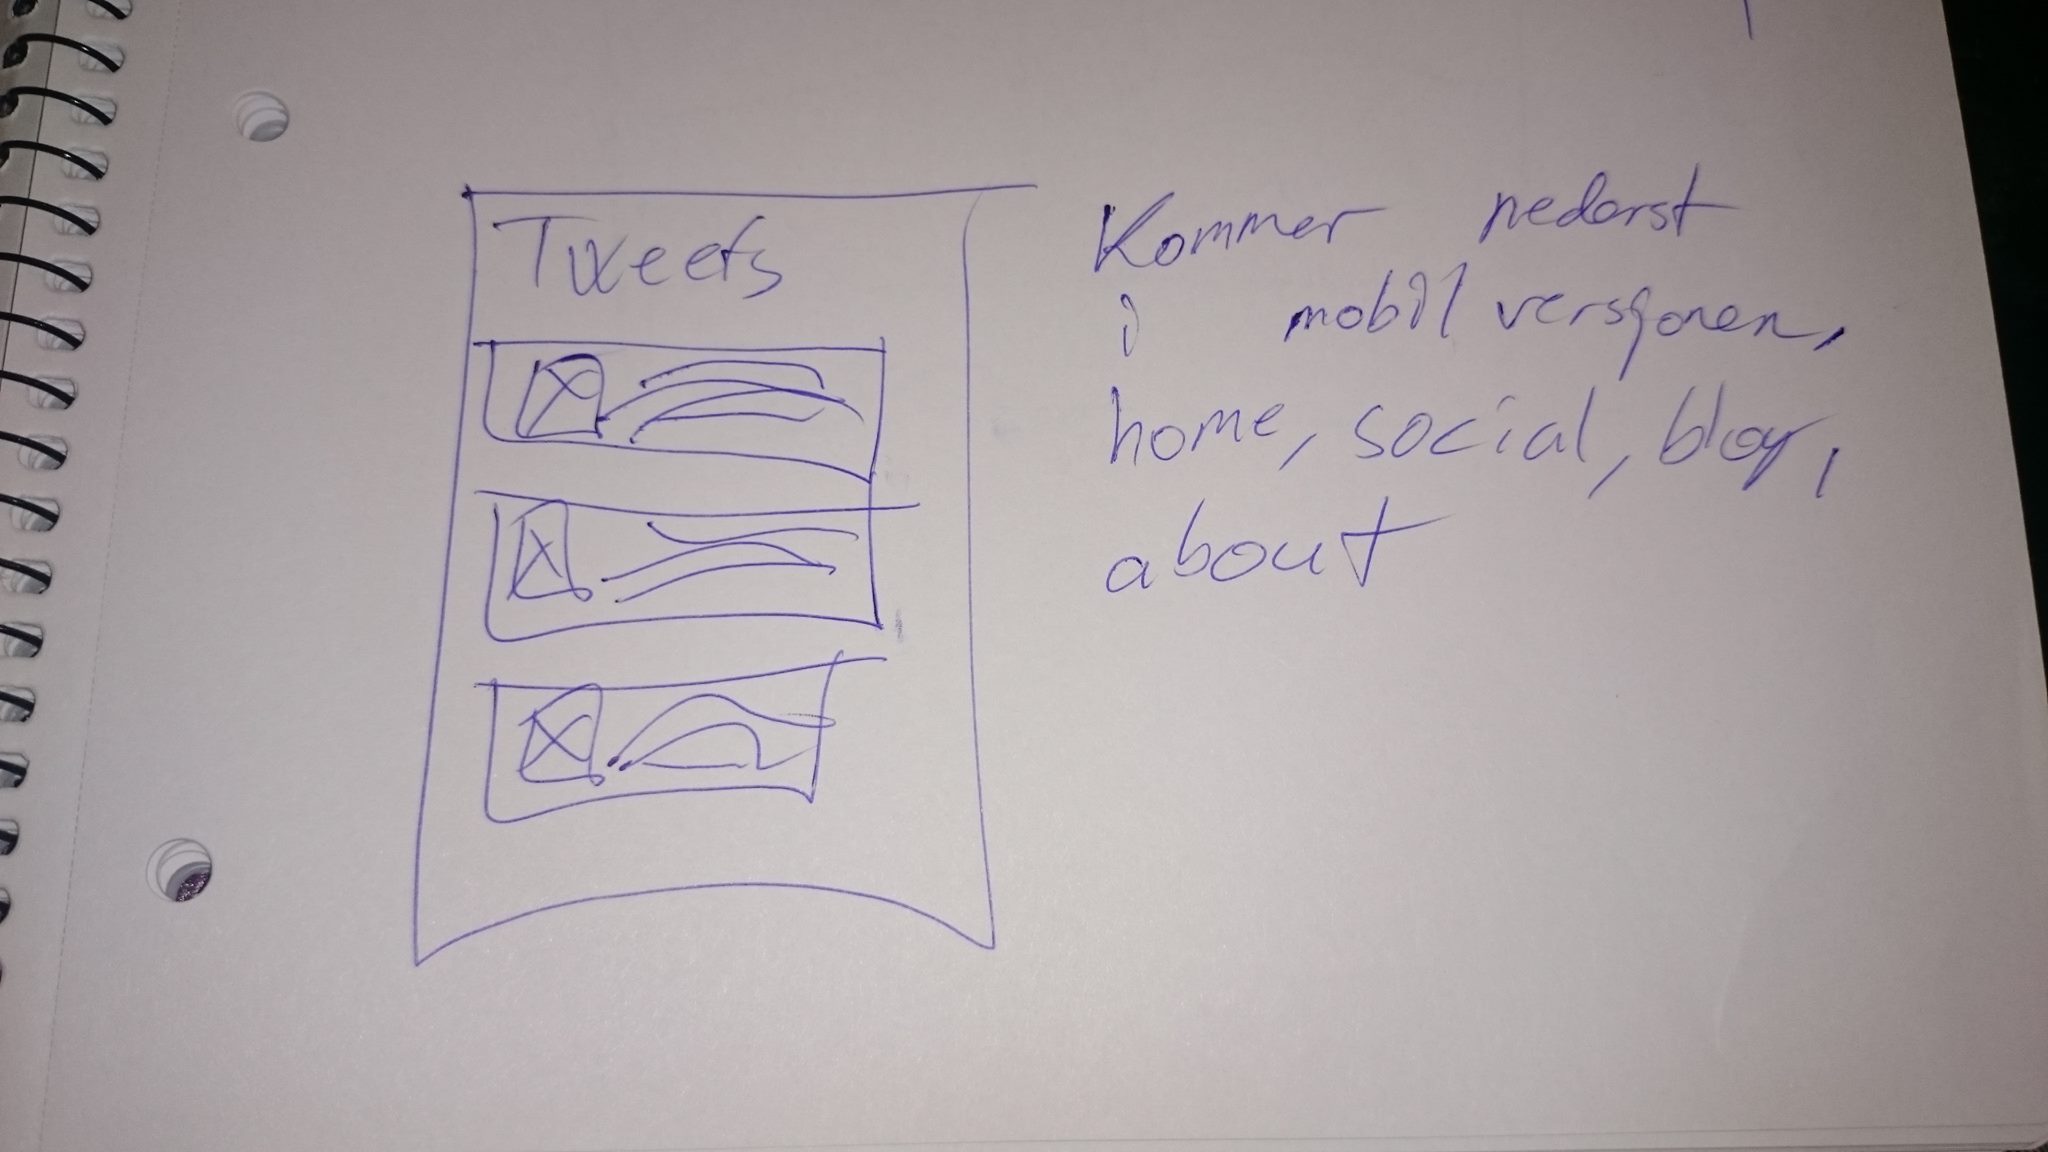 Tweets
Kommer nederst
i mobil versjonen,
home, social, blog,
about